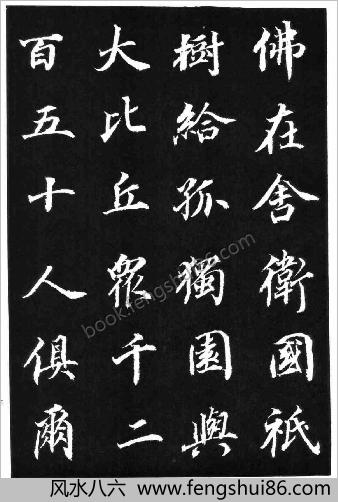 佛在舍衛國祇
樹給孤獨園與
大比丘眾千二
百五十人俱爾
book.fengshui86.com
风水八六 www.fengshui86.com